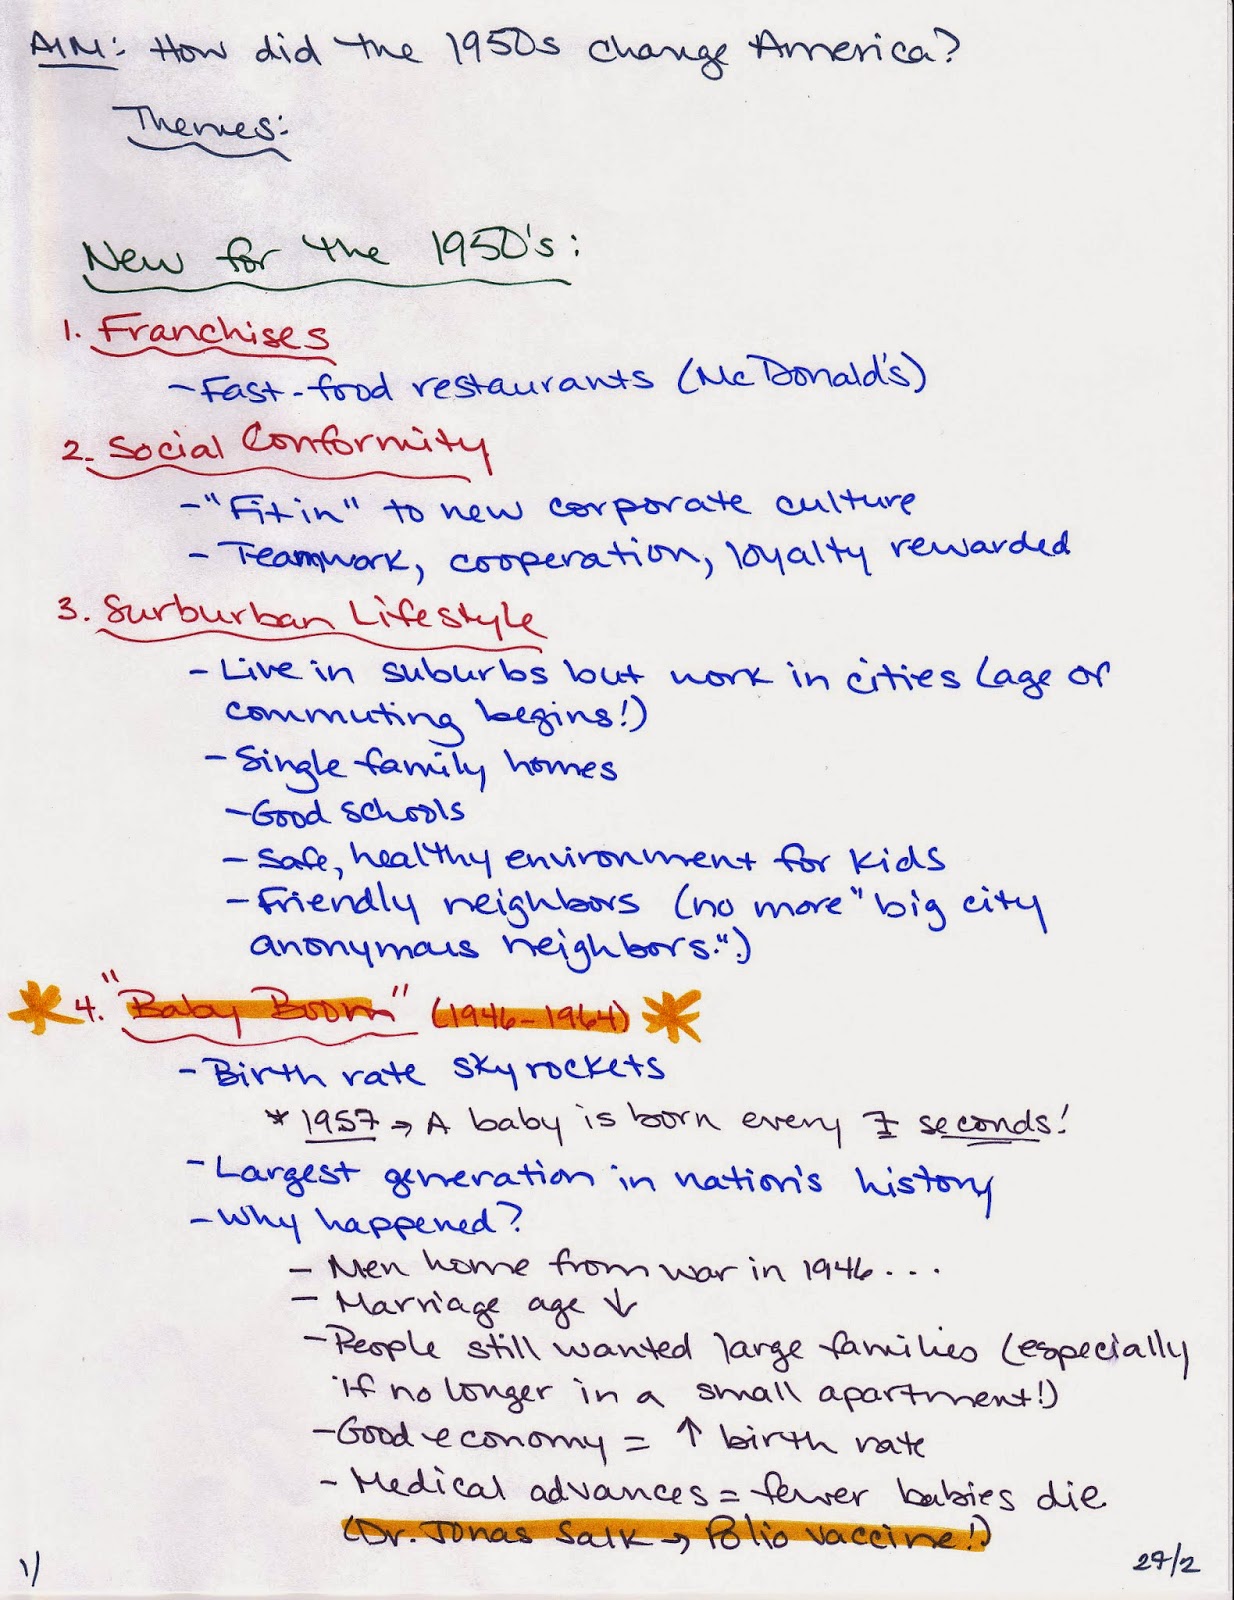 AIM: How did the 1950s change America?
Themes:
New for the 1950's:
1. Franchises
- Fast-food restaurants (McDonald's)
2. Social Conformity
- "Fit in" to new corporate culture
- Teamwork, cooperation, loyalty rewarded
3. Surburban Lifestyle
- Live in suburbs but work in cities (age of
commuting begins!)
- Single family homes
- Good schools
- Safe, healthy environment for kids
- Friendly neighbors (no more "big city
anonymous neighbors.")
* 4. "Baby Boom" (1946-1964) *
- Birth rate skyrockets
* 1957 → A baby is born every 7 seconds!
- Largest generation in nation's history
- Why happened?
- Men home from war in 1946...
- Marriage age ↓
- People still wanted large families (especially
if no longer in a small apartment!)
- Good economy = ↑ birth rate
- Medical advances = fewer babies die
(Dr. Jonas Salk → Polio vaccine!)
1/
27/2